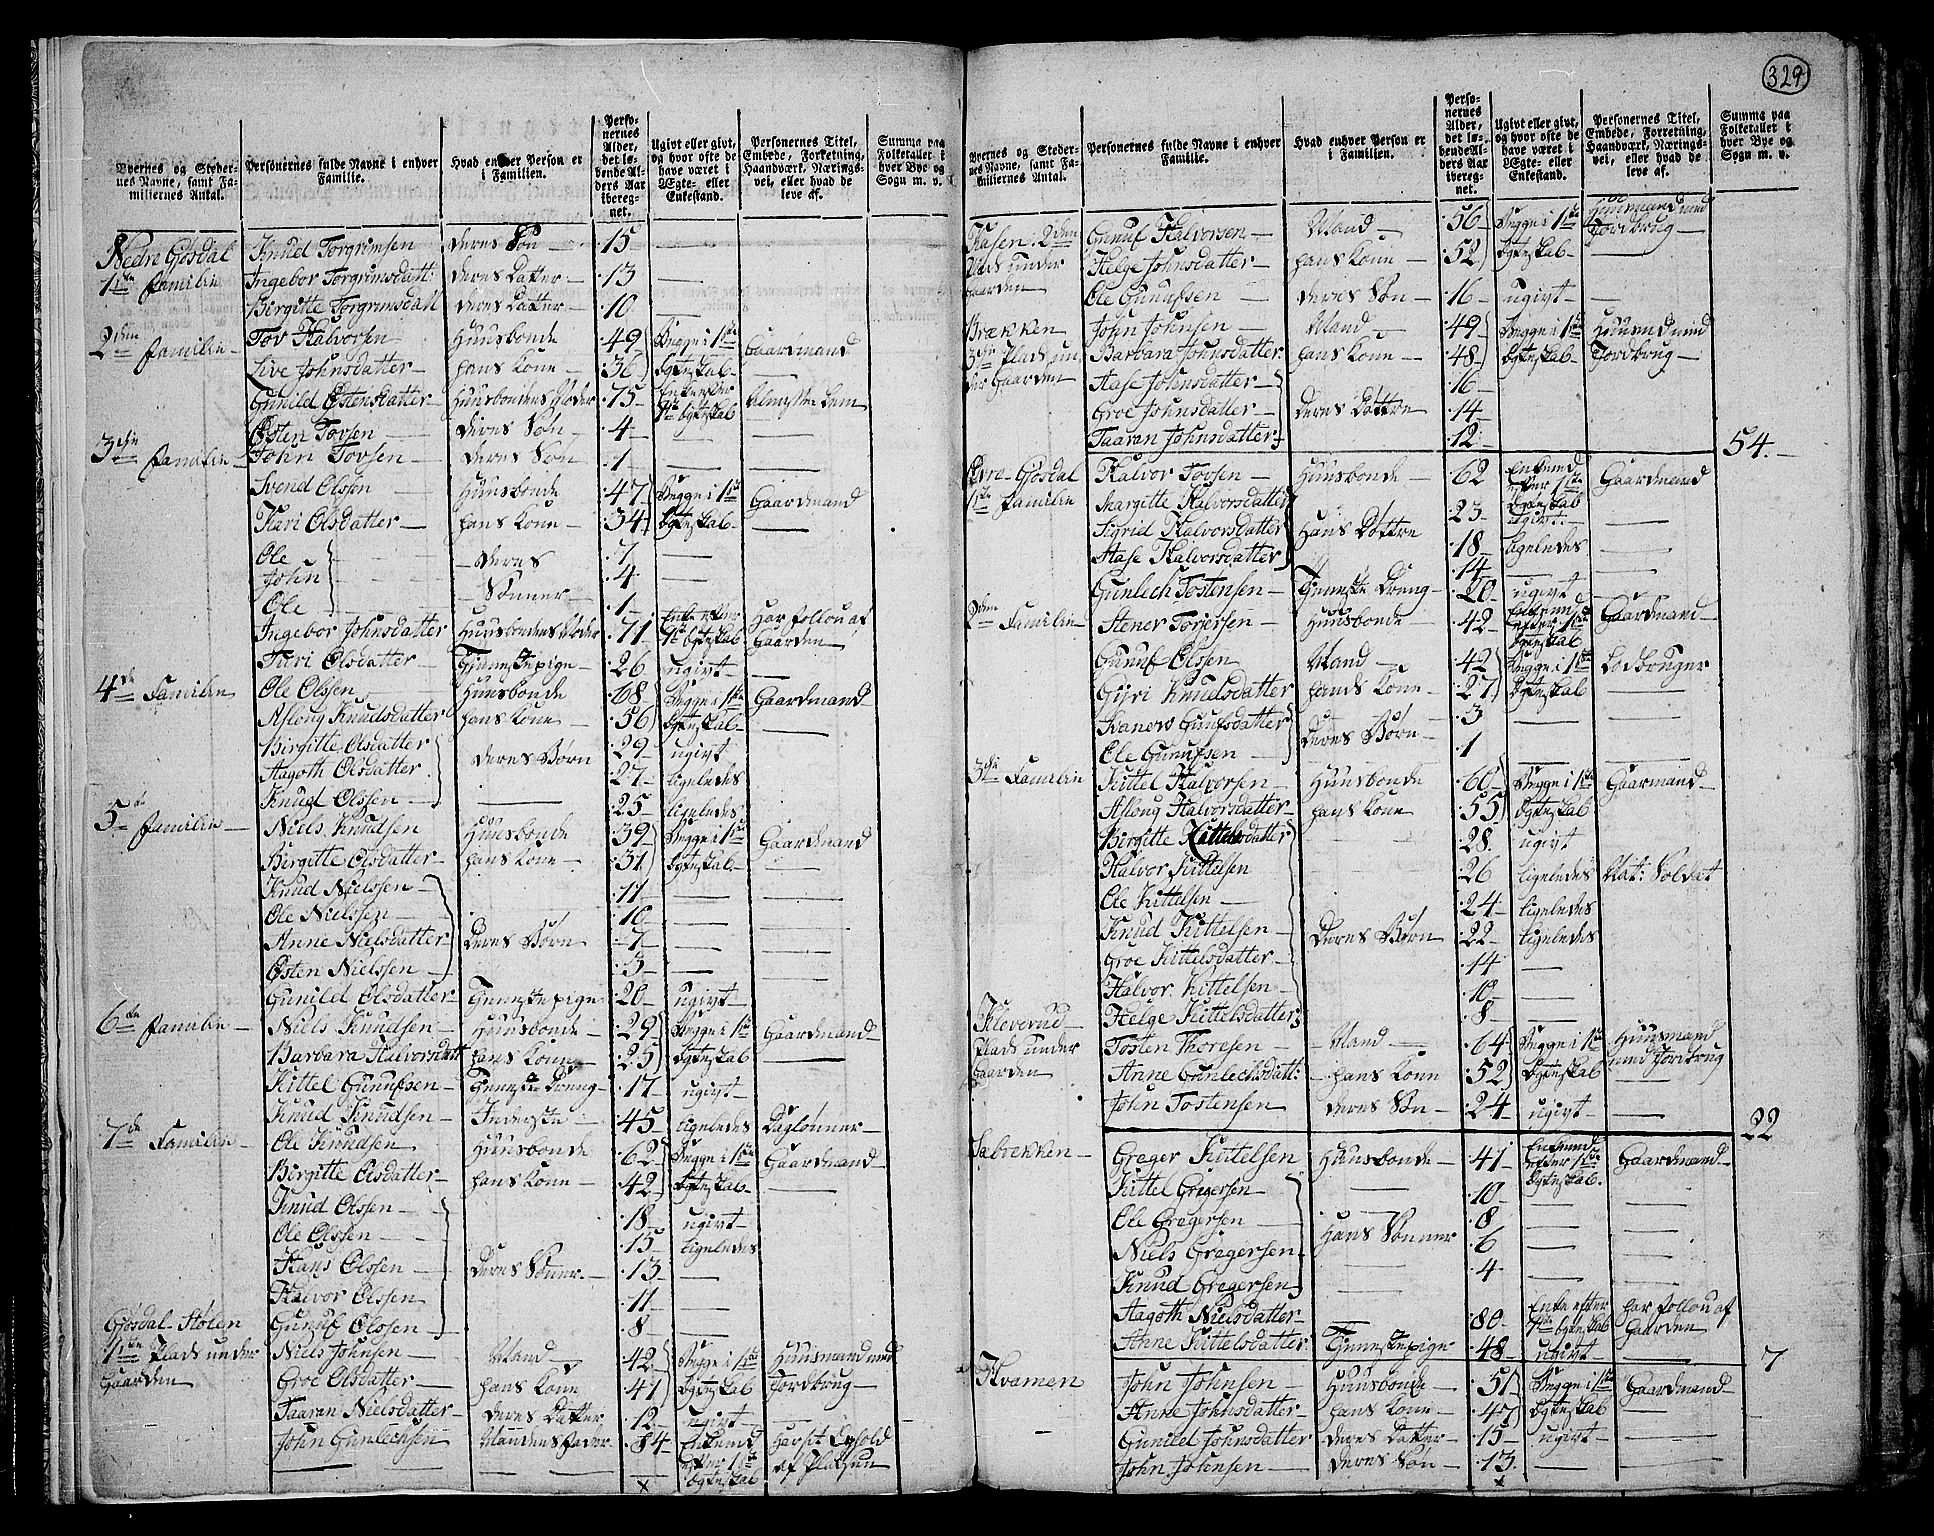 329
Byernes og Stedernes Navne, samt Familiernes Antal. | Personernes fulde Navne i enhver Familie. | Hvad enhver Person er i Familien. | Personernes Alder, det løbende Alders Aar iberegnet. | Ugivt eller givt, og hvor ofte de have været i Ægte- eller Enkestand. | Personernes Titel, Embede, Forretning, Haandværk, Næringsvei, eller hvad de leve af. | Summa paa Folketallet i hver Bye og Sogn m. v.
Nedre Gösdal | Knud Torgrimsen | deres Søn | 15
1ste Familie | Ingebor Torgrimsdatt: | deres Datter | 13
Birgitte Torgrimsdatt | deres Datter | 10
2den Familie | Tov Halvorsen | Huusbonde | 49 | Begge i 1ste | Gaardmand
Live Johnsdatter | hans Kone | 36 | Egteskab
Gunild Østensdatter | Huusbondens Moder | 75 | Enke efter 1te Egteskab
Østen Tovsen | deres Søn | 4
3die Familie | John Tovsen | deres Søn | 1
Svend Olssen | Huusbonde | 47 | Begge i 1ste | Gaardmand
Kari Olsdatter | hans Kone | 34 | Egteskab
Ole | deres | 7
John | Sønner | 4
Ole | 1
Ingebor Johnsdatter | Huusbondens Moder | 71 | Enke efter 1te Egteskab | Har follou af Gaarden
Turi Olsdatter | Tienestepige | 26 | ugivt
4de Familie | Ole Olssen | Huusbonde | 68 | Begge i 1ste | Gaardmand
Aslong Knudsdatter | hans Kone | 56 | Egteskab
Birgitte Olsdatter | deres Børn | 29 | ugivt
Aagoth Olsdatter | 27 | ligeledes
Knud Olssen | 25 | ligeledes
5te Familie | Niels Knudsen | Huusbonde | 39 | Begge i 1ste | Gaardmand
Birgitte Olsdatter | hans Kone | 31 | Egteskab
Knud Nielssen | 11
Ole Nielssen | 10
Anne Nielsdatter | deres Børn | 7
Østen Nielssen | 3
Gunild Olsdatter | Tienestepige | 20 | ugivt
6te Familie | Niels Knudsen | Huusbonde | 29 | Begge i 1ste | Gaardmand
Barbara Halvorsdatt | hans Kone | 25 | Egteskab
Kittel Gunufsen | Tieneste Dreng | 17 | ugivt
Knud Knudsen | Inderste | 45 | ligeledes | Daglönner
7de Familie | Ole Knudsen | Huusbonde | 62 | Begge i 1ste | Gaardmand
Birgitte Olsdatter | hans Kone | 42 | Egteskab
Knud Olssen | 18 | ugivt
Ole Olssen | 15 | ligeledes
Hans Olssen | deres Sønner | 13
Halvor Olssen | 11
Gösdal-Stölen | Gunuf Olssen | 8
1ste Plads under | Niels Johnsen | Mand | 42 | Begge i 1ste | Huusmand med
Gaarden | Groe Olsdatter | hans Kone | 41 | Egteskab | Jordbrug
Taaran Nielsdatter | deres Datter | 12 | ugivt
John Gunlechsen | Mandens Fader | 84 | Enkemd efter 1ste Egteskab | Har sit Ophold af Pladsen
x
Byernes og Stedernes Navne, samt Familiernes Antal. | Personernes fulde Navne i enhver Familie. | Hvad enhver Person er i Familien. | Personernes Alder, det løbende Alders Aar iberegnet. | Ugivt eller givt, og hvor ofte de have været i Ægte- eller Enkestand. | Personernes Titel, Embede, Forretning, Haandværk, Næringsvei, eller hvad de leve af. | Summa paa Folketallet i hver Bye og Sogn m. v.
Kasen: 2den | Gunuf Halvorsen | Mand | 56 | Begge i 1ste | Huusmand med
Plads under | Helge Johnsdatter | hans Kone | 52 | Egteskab | Jordbrug
Gaarden | Ole Gunufsen | deres Søn | 16 | ugivt
Brækken | John Johnsen | Mand | 49 | Begge i 1ste | Huusmd med
3die Plads un | Barbara Johnsdatter | hans Kone | 48 | Egteskab | Jordbrug
der Gaarden | Aase Johnsdatter | 16
Groe Johnsdatter | deres Døttre | 14
Taaran Johnsdatter | 12 | 54.
Øvre-Gösdal | Halvor Tovsen | Huusbonde | 62 | Enkemd efter 1ste Egteskab | Gaardmand
1ste Familie | Margitte Halvorsdatter | 23 | ugivt
Sigrid Halvorsdatter | Hans Döttre | 18 | ligeledes
Aase Halvorsdatter | 14
Gunlech Tostensen | Tieneste Dreng | 20 | ugivt
2den Familie | Stener Torjersen | Huusbonde | 42 | Enkemd efter 1ste Egteskab | Gaardmand
Gunuf Olssen | Mand | 42 | Begge i 1ste | Lodbruger
Gijri Knudsdatter | hands Kone | 27 | Egteskab
Gunufsdatter | deres Børn | 3
Ole Gunufsen | 1
3die Familie | Kittel Halvorsen | Huusbonde | 60 | Begge i 1ste | Gaarmand
Aslong Halvorsdatter | hans Kone | 55 | Egteskab
Birgitte Kittelsdatter | 28 | ugivt
Halvor Kittelsen | 26 | ligeledes | Nat: Soldat
Ole Kittelsen | 24 | ligeledes
Knud Kittelsen | deres Börn | 22 | ligeledes
Groe Kittelsdatter | 14
Halvor Kittelsen | 10
Kleverud | Helge Kittelsdatter | 8
Plads under | Tosten Thoresen | Mand | 64 | Begge i 1ste | Huusmand
Gaarden | Anne Gunlechsdatt: | hans Kone | 52 | Egteskab | med Jordbrug
John Tostensen | deres Søn | 24 | ugivt | 22
Sabrekken | Greger Kittelsen | Huusbonde | 41 | Enkemd efter 1ste Egteskab | Gaardmand
Kittel Gregersen | 10
Ole Gregersen | hans Sönner | 8
Niels Gregersen | 6
Knud Gregersen | 4
Aagoth Nielsdatter | 80 | Enke efter 1te Egteskab | har follou af Gaarden
Anne Kittelsdatter | Tienestepige | 48 | ugivt | 7
Kvamen | John Johnsen | Huusbonde | 51 | Begge i 1ste | Gaardmand
Anne Johnsdatter | hans Kone | 47 | Egteskab
Gunild Johnsdatter | deres Datter | 15 | ugivt
John Johnsen | deres Søn | 13
x